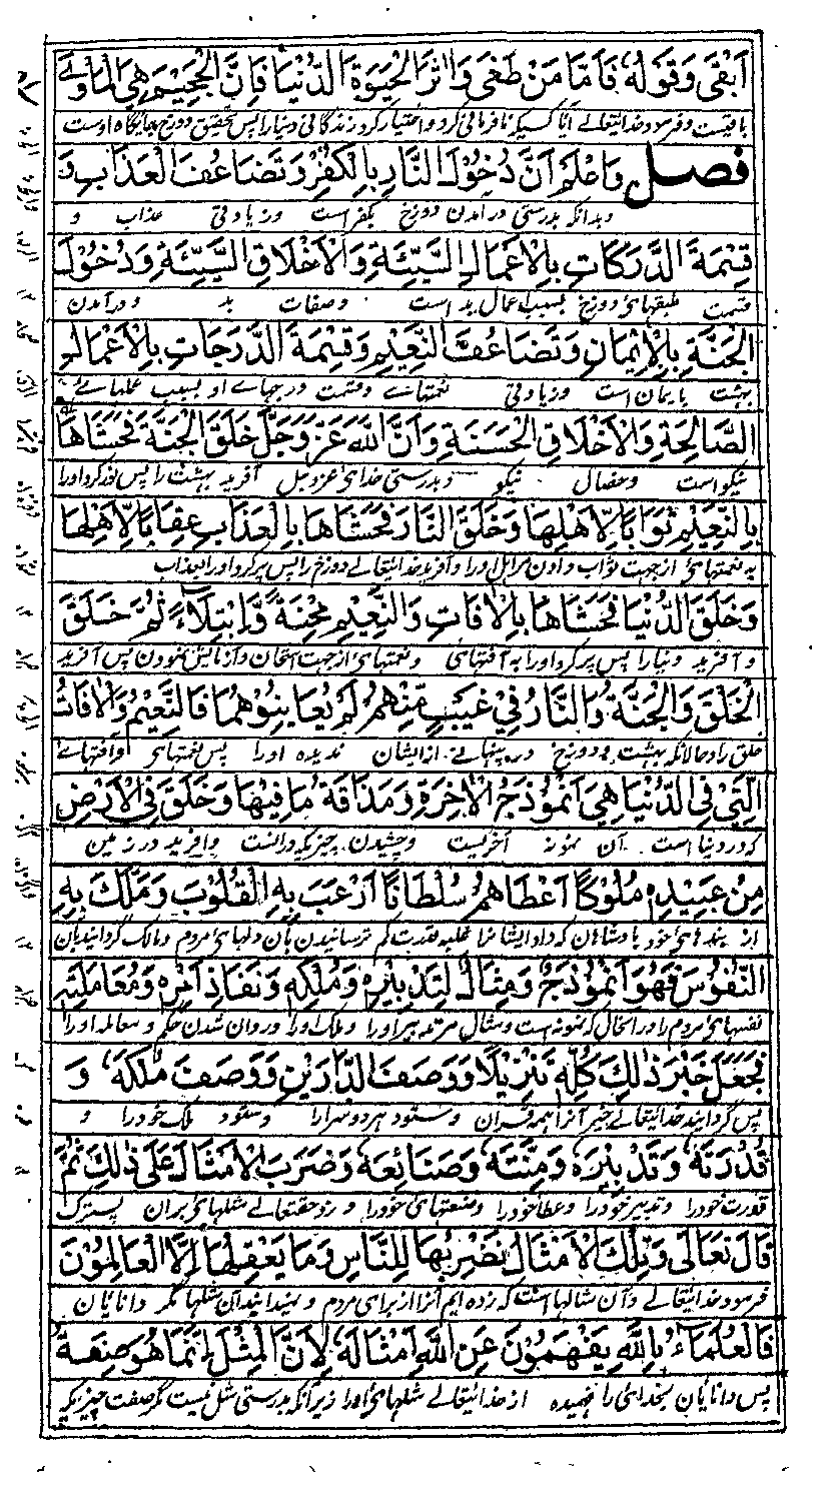 اَبْقٰى وَقَوْلُهٗ فَاَمَّا مَنْ طَغٰى وَاٰثَرَ الْحَيٰوةَ الدُّنْيَا فَاِنَّ الْجَحِيْمَ هِيَ الْمَاْوٰى
باقیست و فرمود خدایتعالے اما کسیکه نافرمانی کرد و اختیار کرد زندگانی دنیا را پس تحقیق دوزخ جایگاه اوست
فصل وَاعْلَمْ اَنَّ دُخُوْلَ النَّارِ بِالْكُفْرِ وَتَضَاعُفَ الْعَذَابِ وَ
وبدانکه بدرستی درآمدن دوزخ بکفر است وزیادتی عذاب و
قِسْمَةَ الدَّرَكَاتِ بِالْاَعْمَالِ السَّيِّئَةِ وَالْاَخْلَاقِ السَّيِّئَةِ وَدُخُوْلَ
قسمت طبقهای دوزخ بسبب اعمال بد است وصفات بد ودرآمدن
الْجَنَّةِ بِالْاِيْمَانِ وَتَضَاعُفَ النَّعِيْمِ وَقِسْمَةَ الدَّرَجَاتِ بِالْاَعْمَالِ
بهشت بایمان است وزیادتی نعمتهاے وقسمت درجہاے او بسبب عملہاے
الصَّالِحَةِ وَالْاَخْلَاقِ الْحَسَنَةِ وَاَنَّ اللّٰهَ عَزَّ وَجَلَّ خَلَقَ الْجَنَّةَ فَحَشَاهَا
نیکو است وخصال نیکو وبدرستی خدای عزوجل آفرید بهشت را پس پر کرد اورا
بِالنَّعِيْمِ ثَوَابًا لِّاَهْلِهَا وَخَلَقَ النَّارَ فَحَشَاهَا بِالْعَذَابِ عِقَابًا لِّاَهْلِهَا
به نعمتهای ازجهت ثواب دادن مراهل اورا وآفرید خدایتعالے دوزخ را پس پر کرد اورا بعذاب
وَخَلَقَ الدُّنْيَا فَحَشَاهَا بِالْاٰفَاتِ وَالنَّعِيْمِ مِحْنَةً وَّابْتِلَاءً ثُمَّ خَلَقَ
وآفرید دنیا را پس پر کرد اورا به آفتهای ونعمتهای ازجهت امتحان وآزمایش نمودن پس آفرید
الْخَلْقَ وَالْجَنَّةُ وَالنَّارُ فِيْ غَيْبٍ مِّنْهُمْ لَمْ يُعَايِنُوْهُمَا فَالنَّعِيْمُ وَالْاٰفَاتُ
خلق را وحالانکه بهشت و دوزخ در پنهانے از ایشان ندیده اورا پس نعمتهای وآفتهاے
الَّتِيْ فِي الدُّنْيَا هِيَ اَنْمُوْذَجُ الْاٰخِرَةِ وَمَذَاقَةُ مَا فِيْهَا وَخَلَقَ فِي الْاَرْضِ
که در دنیا است آن نمونه آخرتست وچشیدن چیزیکه درانست وآفرید در زمین
مِنْ عَبِيْدِهٖ مُلُوْكًا اَعْطَاهُمْ سُلْطَانًا اَرْعَبَ بِهِ الْقُلُوْبَ وَمَلَكَ بِهِ
از بندهای خود پادشاهان که داد ایشانرا غلبه قدرت که ترسانیدن بآن دلهای مردم ومالک گردانید بآن
النُّفُوْسَ فَهُوَ اَنْمُوْذَجٌ وَمِثَالٌ لِتَدْبِيْرِهٖ وَمُلْكِهٖ وَنَفَاذِ اَمْرِهٖ وَمُعَامَلَتِهٖ
نفسهای مردم را که نمونه است ومثال مر تدبیر اورا وملک اورا وروان شدن حکم ومعامله اورا
فَجَعَلَ خَبَرَ ذٰلِكَ كُلِّهٖ تَنْزِيْلًا وَوَصَفَ الدَّارَيْنِ وَوَصَفَ مُلْكَهٗ وَ
پس گردانید خدایتعالے خبر آنرا همه قرآن وستود هردو سرا را وستود ملک خود را و
قُدْرَتَهٗ وَتَدْبِيْرَهٗ وَمِنَّتَهٗ وَصَنَائِعَهٗ وَضَرَبَ الْاَمْثَالَ عَلٰى ذٰلِكَ ثُمَّ
قدرت خود را وتدبیر خود را وعطا خود را وصنعتهای خود را وزد حقتعالے مثلهای بران
قَالَ تَعَالٰى وَتِلْكَ الْاَمْثَالُ نَضْرِبُهَا لِلنَّاسِ وَمَا يَعْقِلُهَا اِلَّا الْعَالِمُوْنَ
فرمود خدایتعالے وآن مثالها است که زده ایم آنرا از برای مردم ونمیدانند آن مثلها مگر دانایان
فَالْعُلَمَاءُ بِاللّٰهِ يَفْهَمُوْنَ عَنِ اللّٰهِ اَمْثَالَهٗ لِاَنَّ الْمِثْلَ اِنَّمَا هُوَ صِفَةُ
پس دانایان بخدای را فهمیده از خدایتعالے مثلهای اورا زیرآنکه بدرستی مثل نیست مگر صفت چیزیکه